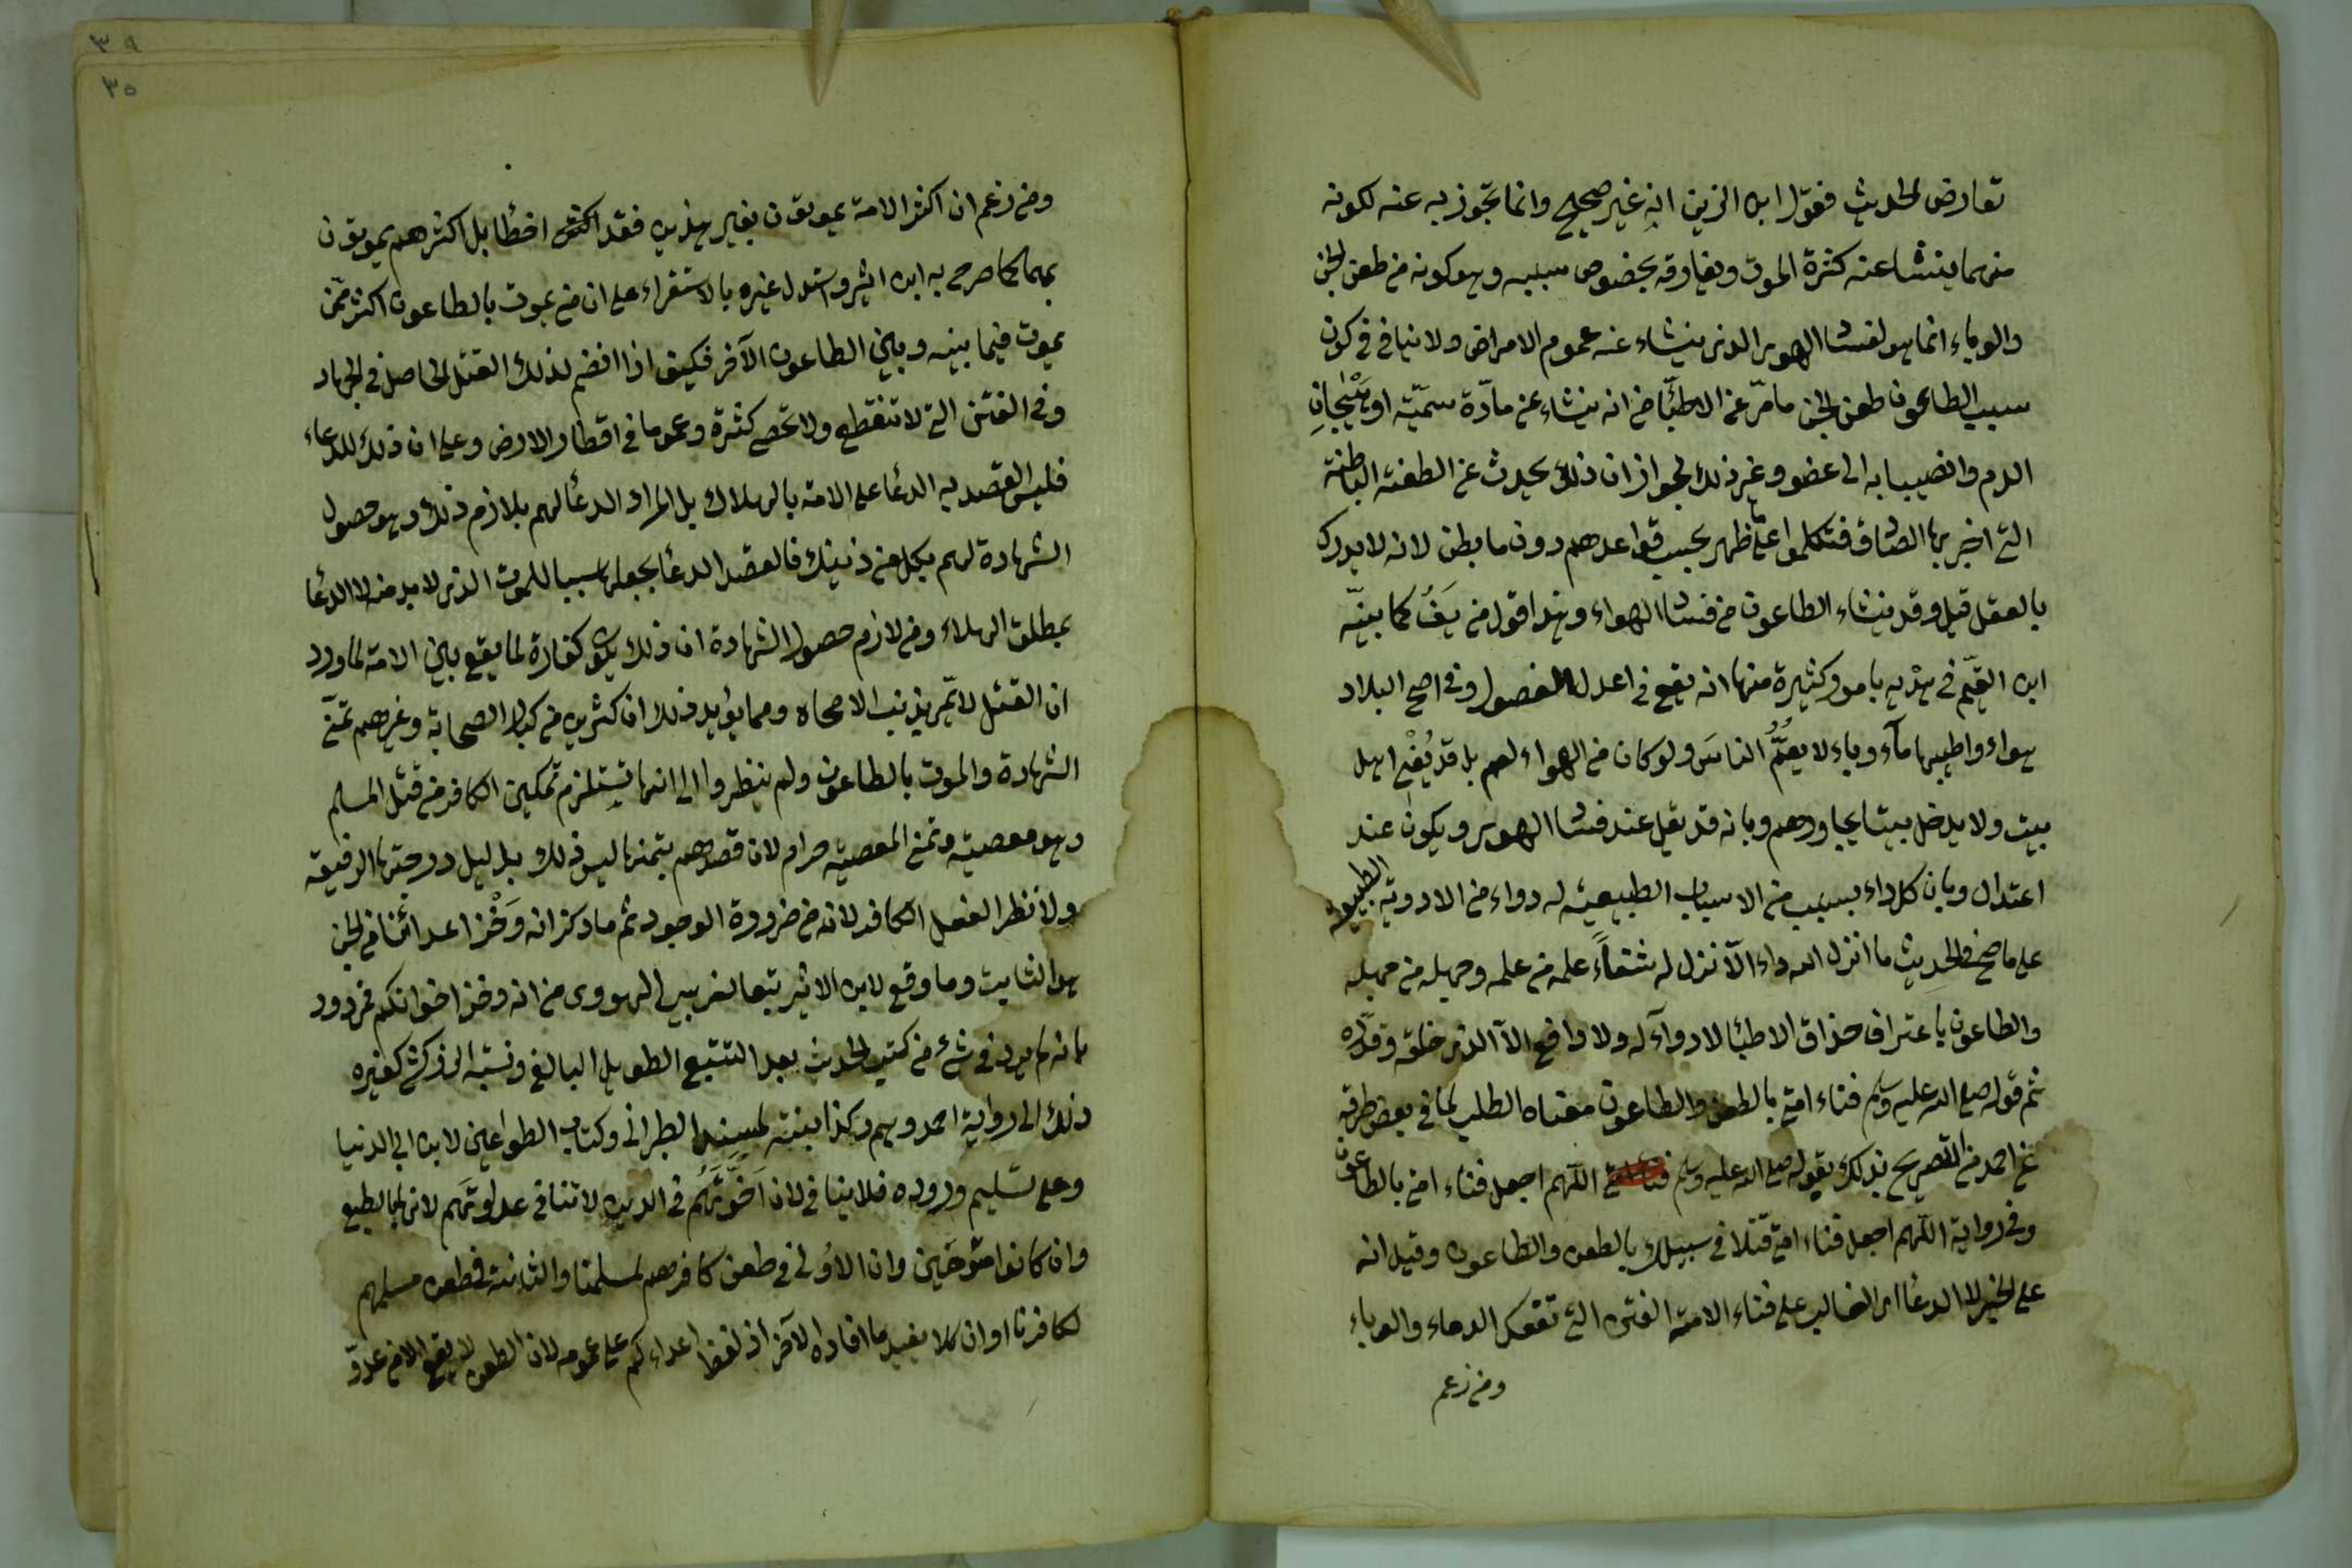 تعارض الحديث فقول ابن الزين انه غير صحيح وانما تجوز به عنه لكونه
منهما ينشا عنه كثرة الموت ويفارقه بخصوص سببه وهو كونه من طعن الجن
والوباء انما هو لفساد الهوى الذى ينشاء عنه عموم الامراض ولا ينافى فى كون
سبب الطاعون طعن الجن ما مرّ عن الاطبّا من انه ينشاء عن مادّة سمّيّة او هيجان
الدم وانصبابه الى عضو وغير ذلك لجواز ان ذلك يحدث عن الطعنة الباطنة
التى اخبر بها الصادق فتكلموا على ما ظهر بحسب قواعدهم دون ما بطن لانه لا يدرك
بالعقل قيل وقد ينشاء الطاعون من فساد الهواء وهذا قول مزيف كما بيّنه
ابن القيّم فى هديه بامور كثيرة منها انه يقع فى اعدل الفصول وفى اصح البلاد
هواء واطيبها مآء وباء لا يعمّ الناس ولو كان من الهواء لعم بل قد يُفنى اهل
بيت ولا يدخل بيتا يجاورهم وبانه قد يقل عند فساد الهوى ويكون عند
اعتدال وبان كل داء بسبب من الاسباب الطبيعية له دواء من الادوية الطبيعية
على ما صح فى الحديث ما انزل الله داء الا نزل له شفاء علمه من علمه وجهله من جهله
والطاعون باعتراف حذاق الاطبا لا دوآء له ولا دافع الا الذى خلقه وقدّره
ثم قوله صلى الله عليه وسلم فناء امتى بالطعن والطاعون معناه الطلب لما فى بعض طرقه
عن احمد من التصريح بذلك بقوله صلى الله عليه وسلم اللهم اجعل فناء امتى بالطاعون
وفى رواية اللهم اجعل فناء امتى قتلا فى سبيلك بالطعن والطاعون وقيل انه
على الخبر لا الدعا اى الغالب على فناء الامة الفتن التى تسفك الدماء والوباء
ومن زعم
٣٩
٣٥
ومن زعم ان اكثر الامة يموتون بغير هذين فقد اخطا بل اكثرهم يموتون
بهما كما صرح به ابن اثير واستدل غيره بالاستقراء على ان من يموت بالطاعون اكثر ممّن
يموت فيما بينه وبين الطاعون الآخر فكيف اذا انضم لذلك القتل الحاصل فى الجهاد
وفى الفتن التى لا تنقطع ولا تحصى كثرة وعموما فى اقطار الارض وعلى ان ذلك للدعاء
فليس القصد به الدعا على الامة بالهلاك بل المراد الدعا لهم بلازم ذلك وهو حصول
الشهادة لهم بكل من ذينك فالقصد الدعا بجعلها سببا للموت الذى لا بد منه لا الدعا
بمطلق الهلاء ومن لازم حصول الشهادة ان ذلك يكون كفارة لما يقع بين الامة لما ورد
ان القتل لا يمرّ بذنب الا محاه ومما يؤيد ذلك ان كثيرين من كبار الصحابة وغيرهم تمنّى
الشهادة والموت بالطاعون ولم ينظروا الى انها تستلزم تمكين الكافر من قتل المسلم
وهو معصية وتمنى المعصية حرام لان قصدهم بتمنها ليس ذلك بل لنيل درجتها الرفيعة
ولا نظر الفعل الكافر لانه من ضرورة الوجود ثم ما ذكر انه وَخْز اعدائنا من الجن
هو الثابت وما وقع لابن الاثير تبعا لغريبى الهروى من انه وخز اخوانكم مردود
بانه لم يرد فى شئ من كتب الحديث بعد التتبع الطويل البالغ ونسبة الزركشى كغيره
ذلك الى رواية احمد وهم وكذا نسبته لمسند الطبرانى وكتاب الطواعين لابن ابى الدنيا
وعلى تسليم وروده فلا ينافى لان اخوّتهم فى الدين لا تنافى عداوتهم لانها بالطبع
وان كانوا متوخين وان الاولى فى طعن كافرهم لمسلمنا والثانية فى طعن مسلمهم
لكافرنا او ان كلا يفيد ما افاده الآخر اذ لفظ اعداءكم على عمومه لان الطعن لا يقع الا من عدوّ